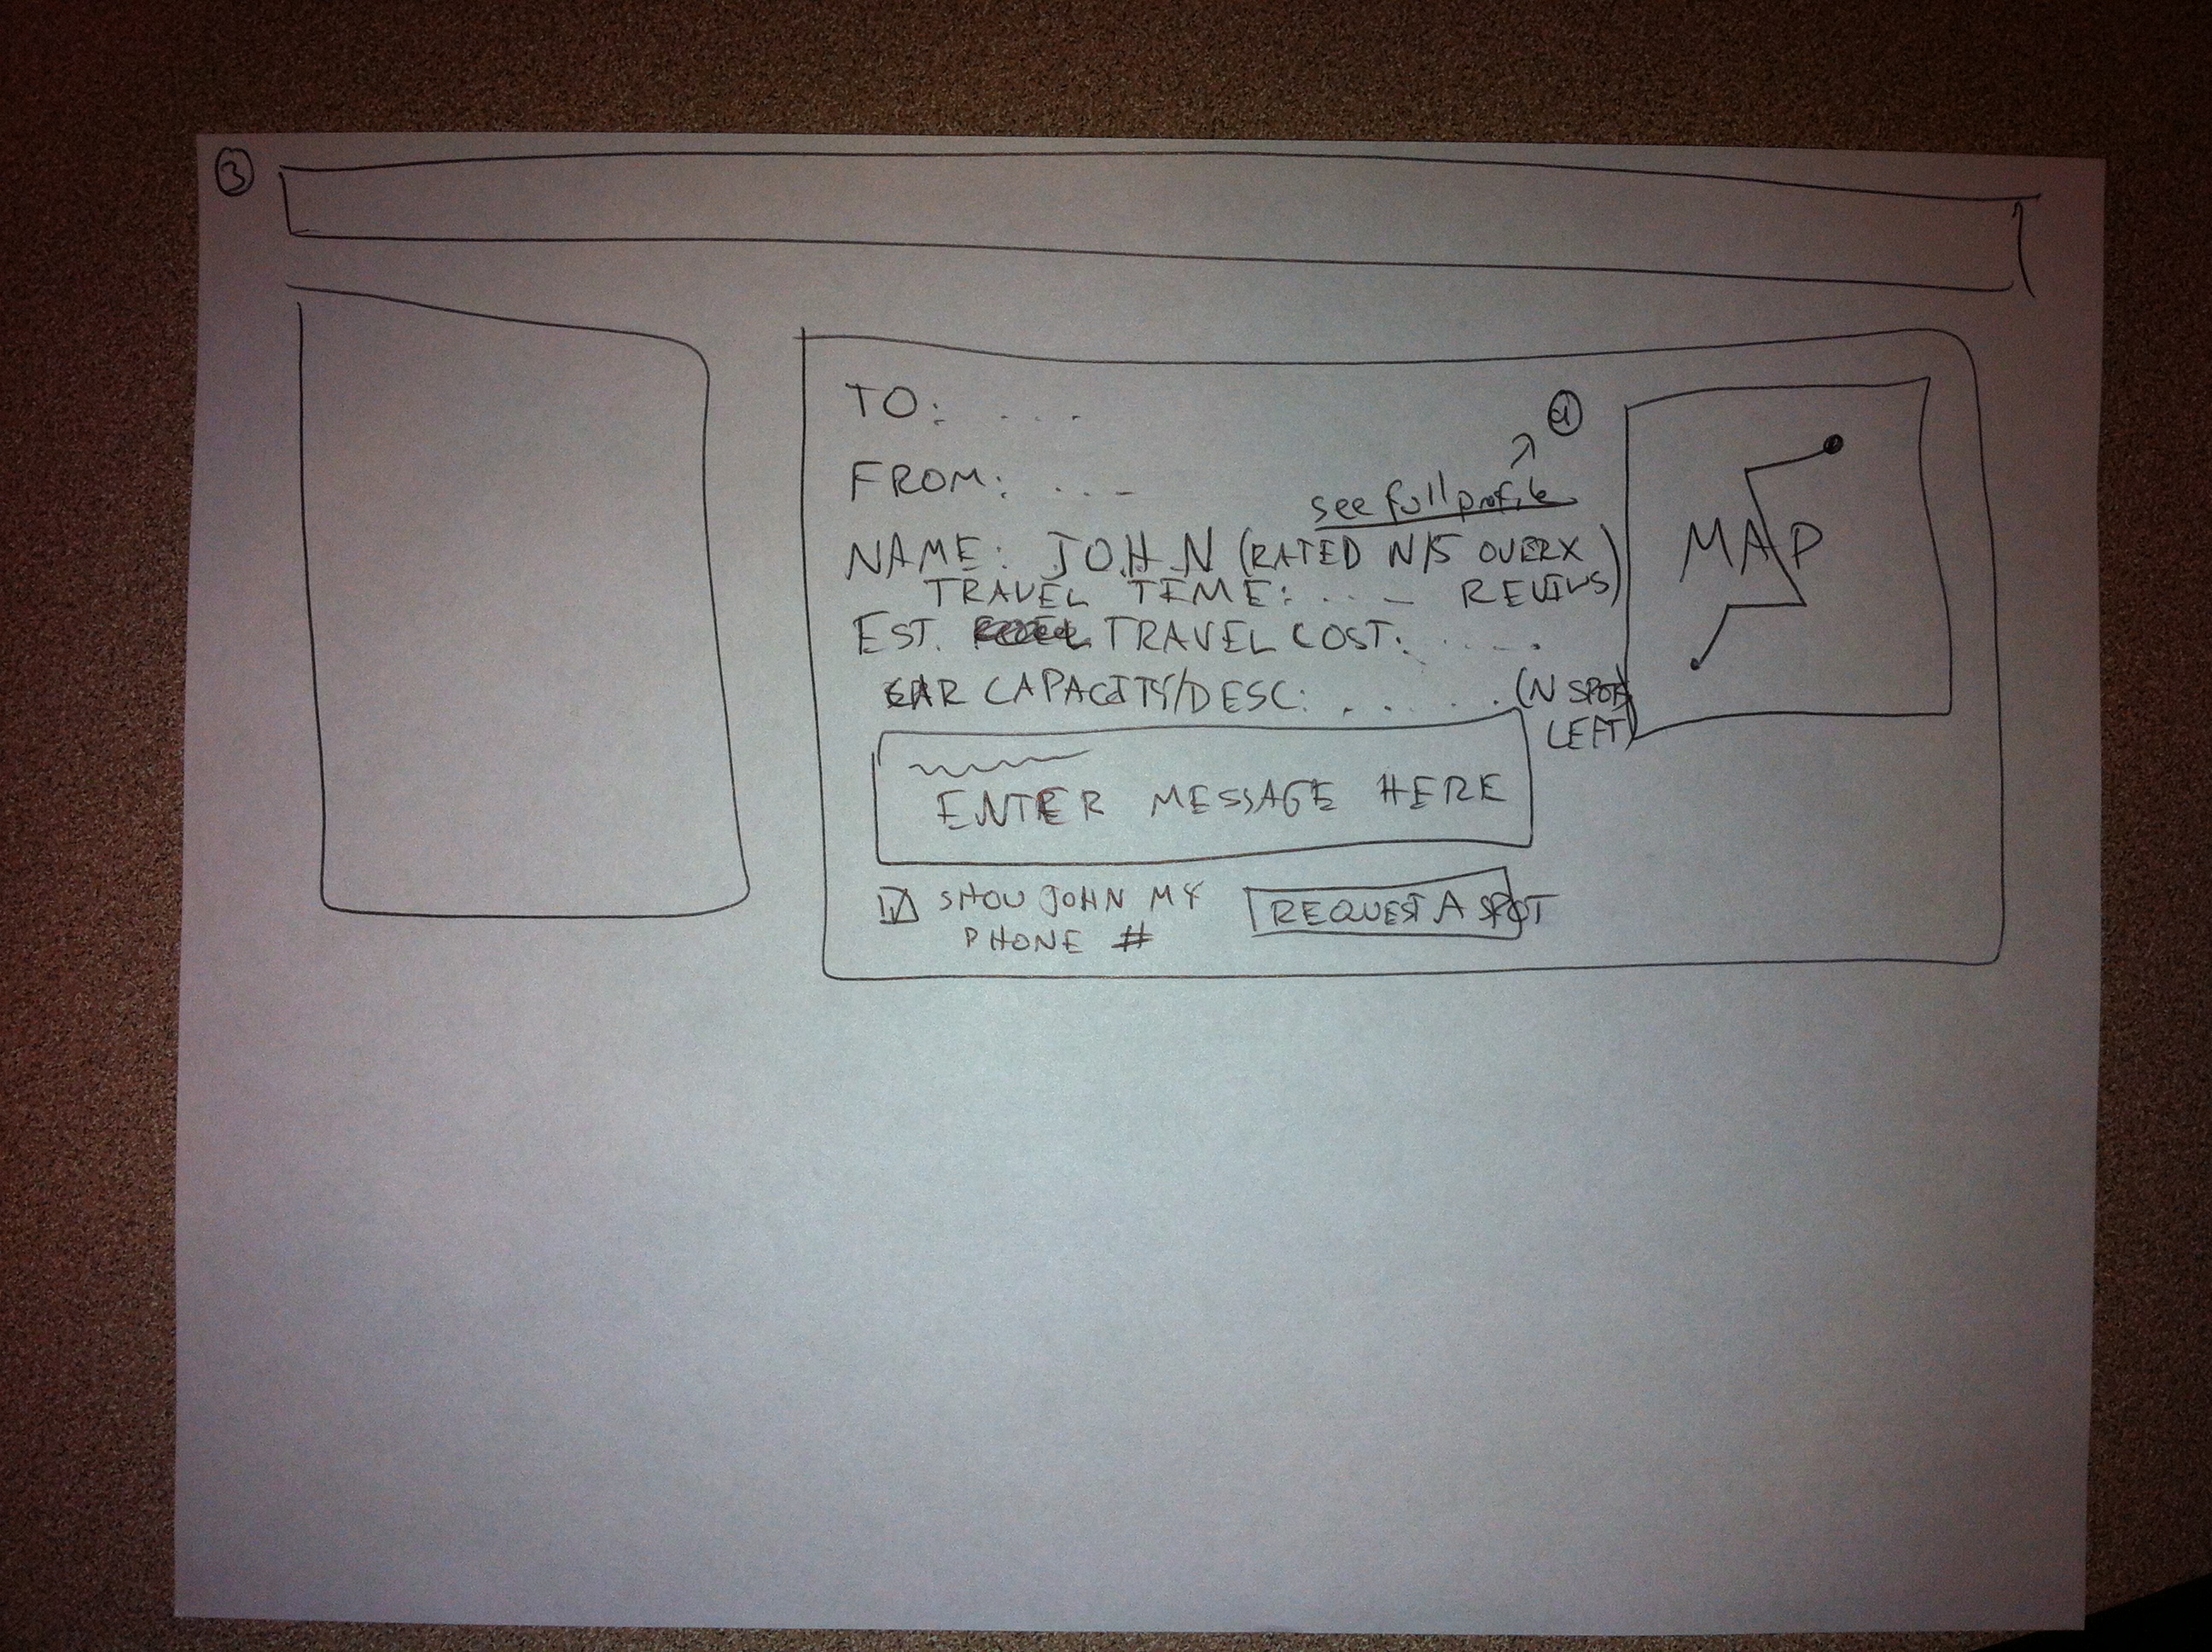 3
TO: ....
4
FROM: ...-
see full profile
NAME: JOHN (RATED N/5 OVER X
TRAVEL TIME: ...- REVIEWS)
EST. TRAVEL COST: .....
CAR CAPACITY/DESC: ..... (N SPOTS
LEFT)
MAP
ENTER MESSAGE HERE
SHOW JOHN MY
PHONE #
REQUEST A SPOT